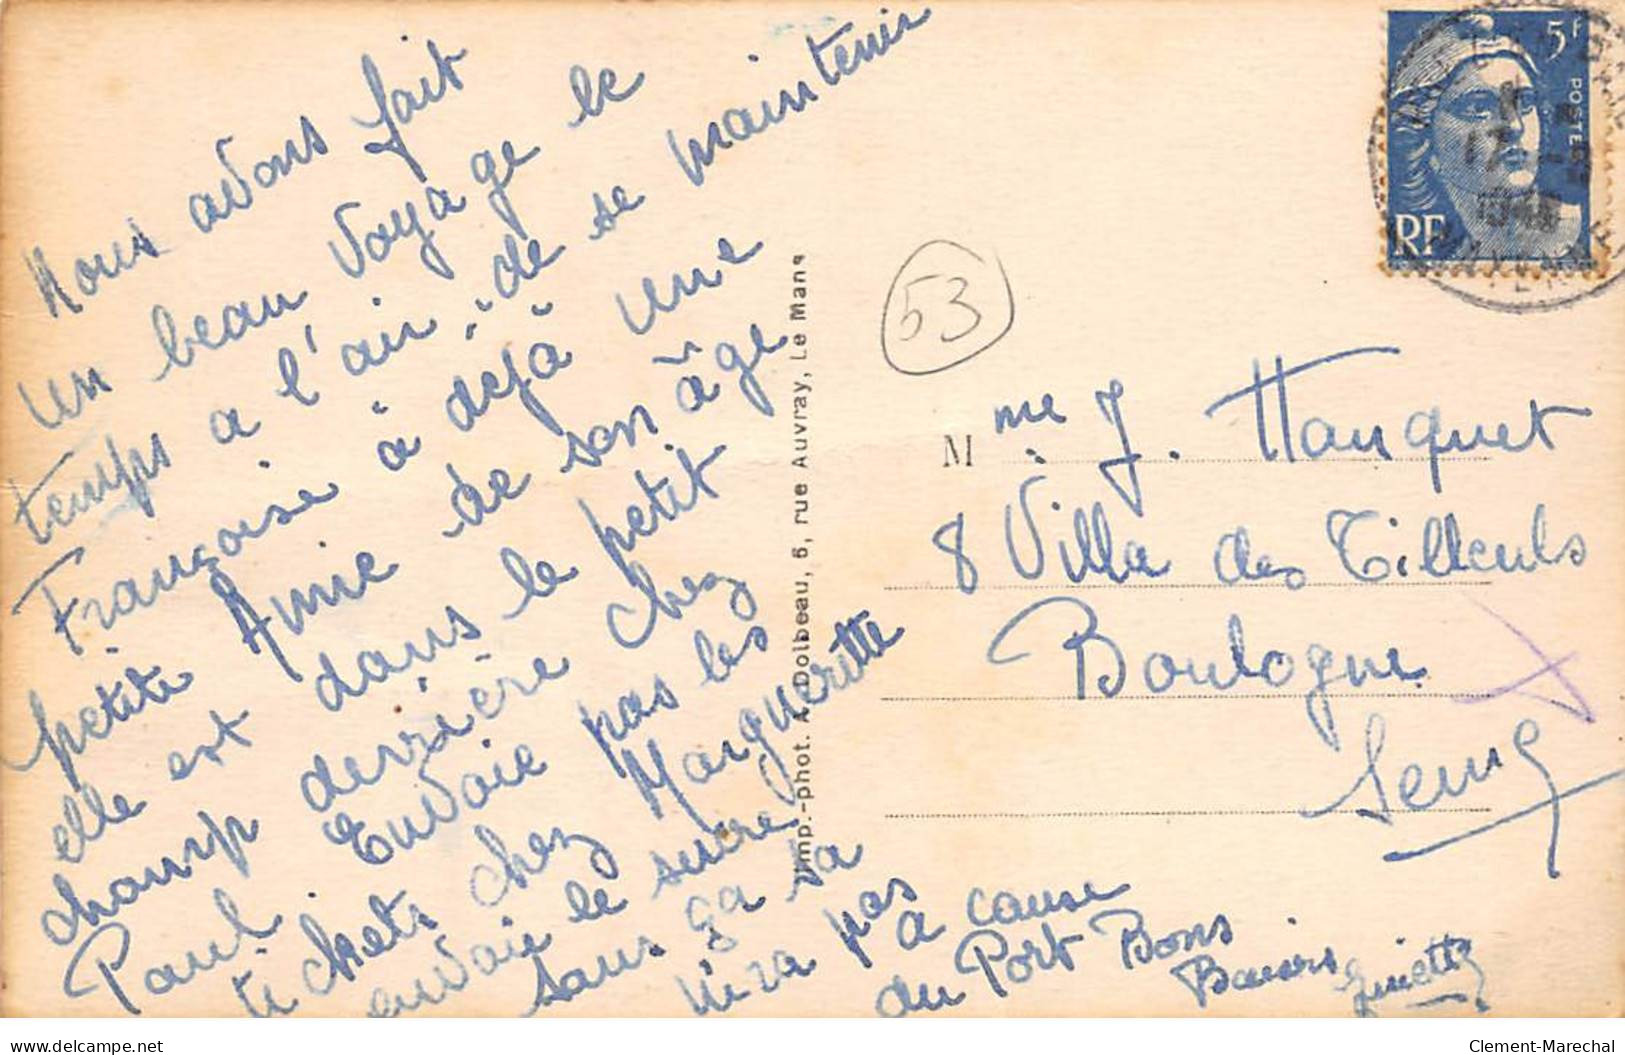 Nous avons fait
un beau voyage le
temps a l'air de se maintenir
Françoise a déjà une
petite Amie de son âge
elle est dans le petit
champ derrière chez
Paul. Envoie pas les
tickets chez Marguerette
envoie le sucre
sans ça sa
vira pas
à cause
du Port Bons
Baisers Guiette
Imp.-phot. A. Dolbeau, 6, rue Auvray, Le Mans
53
5F
POSTES
RF
17
MAYENNE
Mme J. Hanquet
8 Villa des Tilleuls
Boulogne
Seine
www.delcampe.net
Clement-Marechal